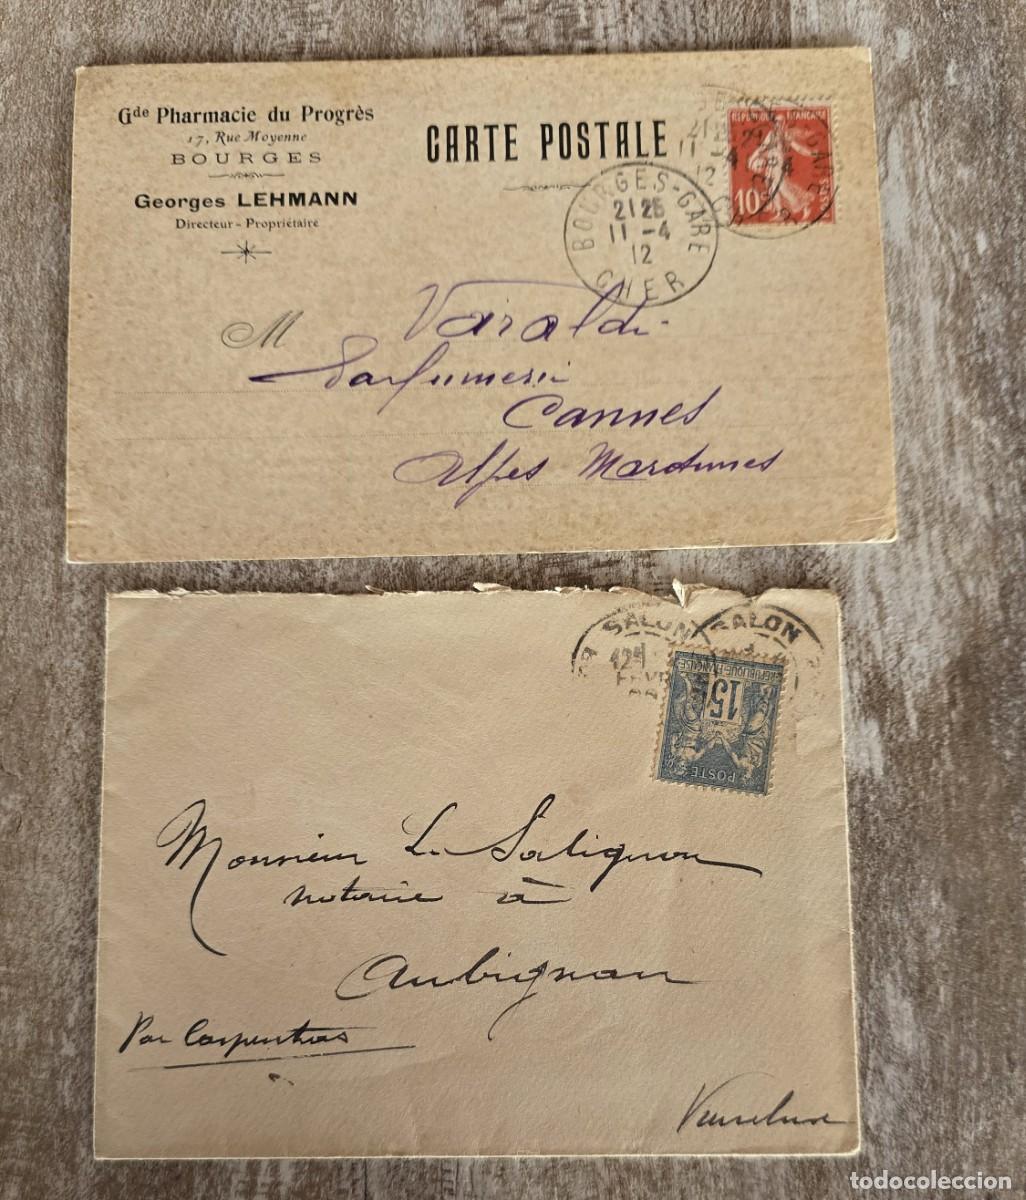 Gde Pharmacie du Progrès
17, Rue Moyenne
BOURGES
Georges LEHMANN
Directeur - Propriétaire
CARTE POSTALE
REPUBLIQUE FRANÇAISE
10c
BOURGES-GARE
21 25
11 -4
12
CHER
M Varaldi
Parfumerie
Cannes
Alpes Maritimes
SALON
SALON
12
FEVR
REPUBLIQUE FRANÇAISE
15
POSTES
Monsieur L. Salignon
notaire à
Aubignan
Par Carpentras
Vaucluse
todocoleccion